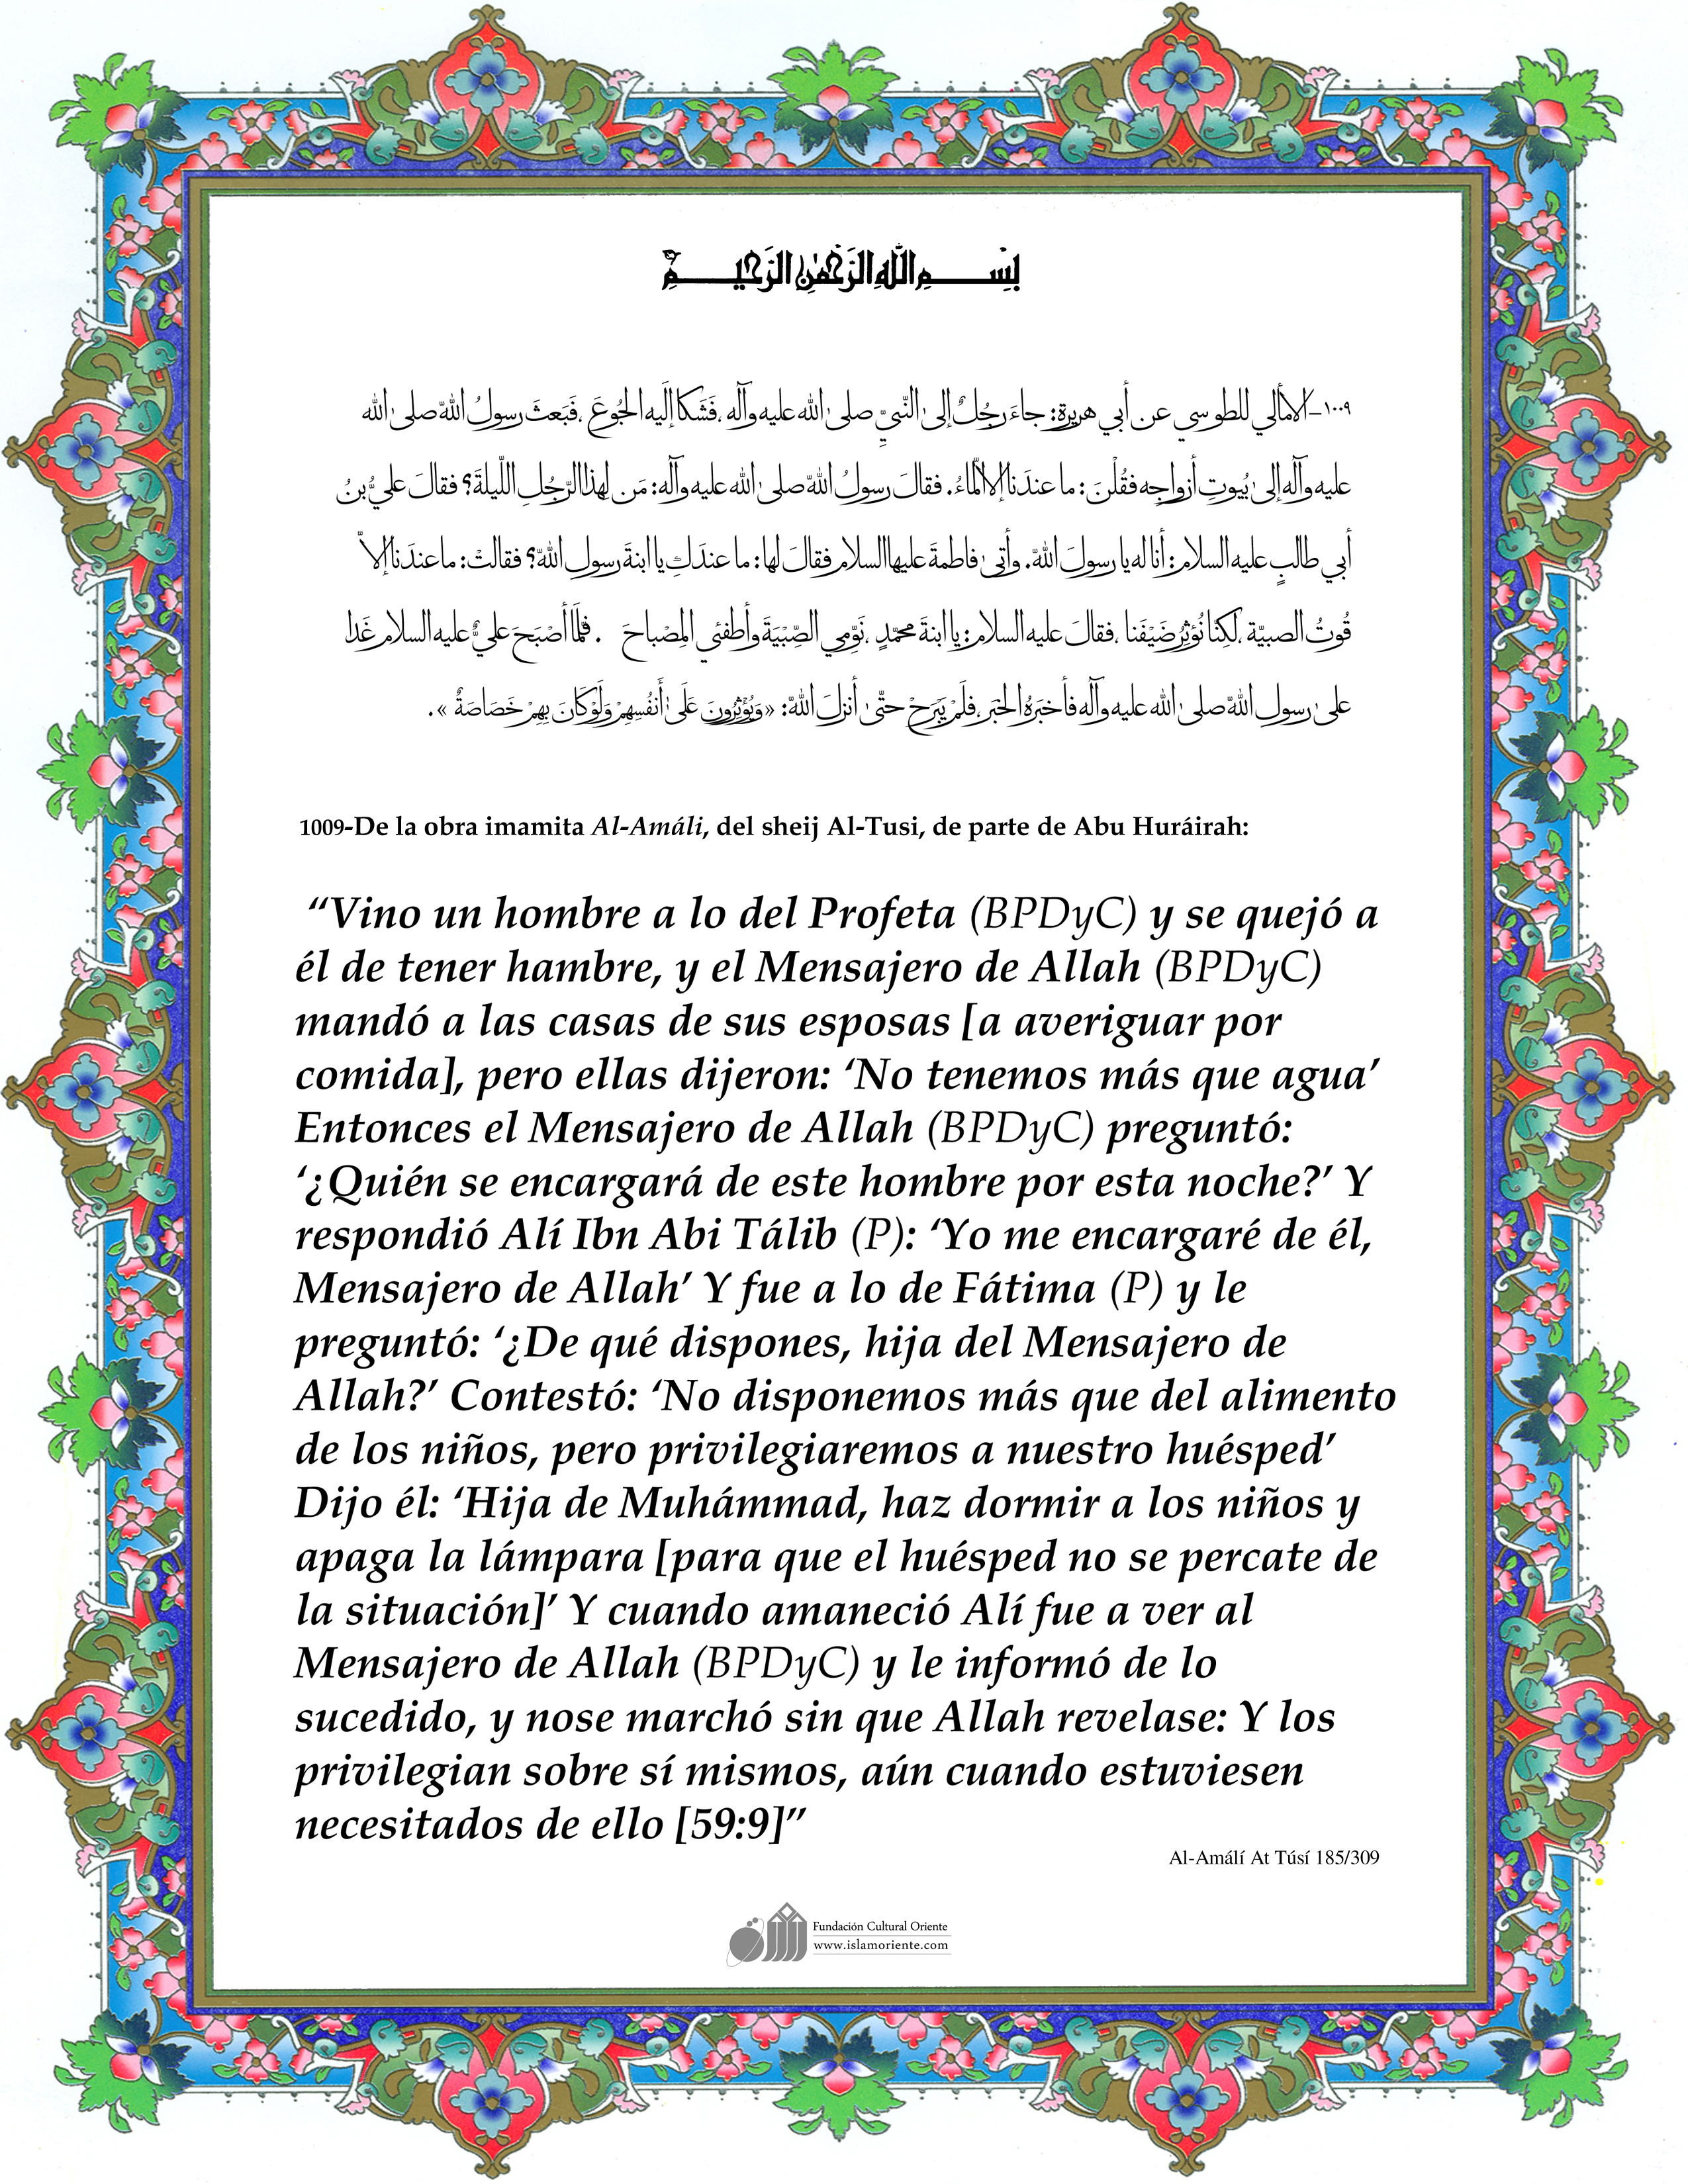 بِسْمِ اللهِ الرَّحْمٰنِ الرَّحِيمِ
١٠٠٩-الأمالي للطوسي عن أبي هريرة: جاءَ رجُلٌ إلى النّبيِّ صلى الله عليه وآله ،فَشَكا إلَيهِ الجُوعَ ،فَبَعثَ رسولُ اللهّ صلى الله
عليه وآله إلى بُيوتِ أزواجِه فقُلْنَ: ما عندَنا إلاّ الماءُ. فقالَ رسولُ اللهّ صلى الله عليه وآله: مَن لِهذا الرّجُلِ اللّيلةَ؟ فقالَ عليُّ بنُ
أبي طالبٍ عليه السلام: أنا له يا رسولَ اللهّ. وأتى فاطمةَ عليها السلام فقالَ لها: ما عندَكِ يا ابنةَ رسولِ اللهّ؟ فقالتْ: ما عندَنا إلاّ
قُوتُ الصبيّة ،لكِنّا نُؤثِرُ ضَيْفَنا ،فقالَ عليه السلام: يا ابنةَ محمّدٍ ،نَوّمِي الصِّبْيَةَ وأطفئي المِصْباحَ . فلَمّا أصْبَحَ عليٌّ عليه السلام غَدا
على رسولِ اللهّ صلى الله عليه وآله فأخبَرَهُ الخَبَر ،فلَم يَبْرَحْ حتّى أنزلَ اللهّ: «وَيُؤْثِرُونَ عَلَى أَنفُسِهِمْ وَلَوْ كَانَ بِهِمْ خَصَاصَةٌ ».
1009-De la obra imamita Al-Amáli, del sheij Al-Tusi, de parte de Abu Huráirah:
“Vino un hombre a lo del Profeta (BPDyC) y se quejó a
él de tener hambre, y el Mensajero de Allah (BPDyC)
mandó a las casas de sus esposas [a averiguar por
comida], pero ellas dijeron: ‘No tenemos más que agua’
Entonces el Mensajero de Allah (BPDyC) preguntó:
‘¿Quién se encargará de este hombre por esta noche?’ Y
respondió Alí Ibn Abi Tálib (P): ‘Yo me encargaré de él,
Mensajero de Allah’ Y fue a lo de Fátima (P) y le
preguntó: ‘¿De qué dispones, hija del Mensajero de
Allah?’ Contestó: ‘No disponemos más que del alimento
de los niños, pero privilegiaremos a nuestro huésped’
Dijo él: ‘Hija de Muhámmad, haz dormir a los niños y
apaga la lámpara [para que el huésped no se percate de
la situación]’ Y cuando amaneció Alí fue a ver al
Mensajero de Allah (BPDyC) y le informó de lo
sucedido, y nose marchó sin que Allah revelase: Y los
privilegian sobre sí mismos, aún cuando estuviesen
necesitados de ello [59:9]”
Al-Amálí At Túsí 185/309
Fundación Cultural Oriente
www.islamoriente.com